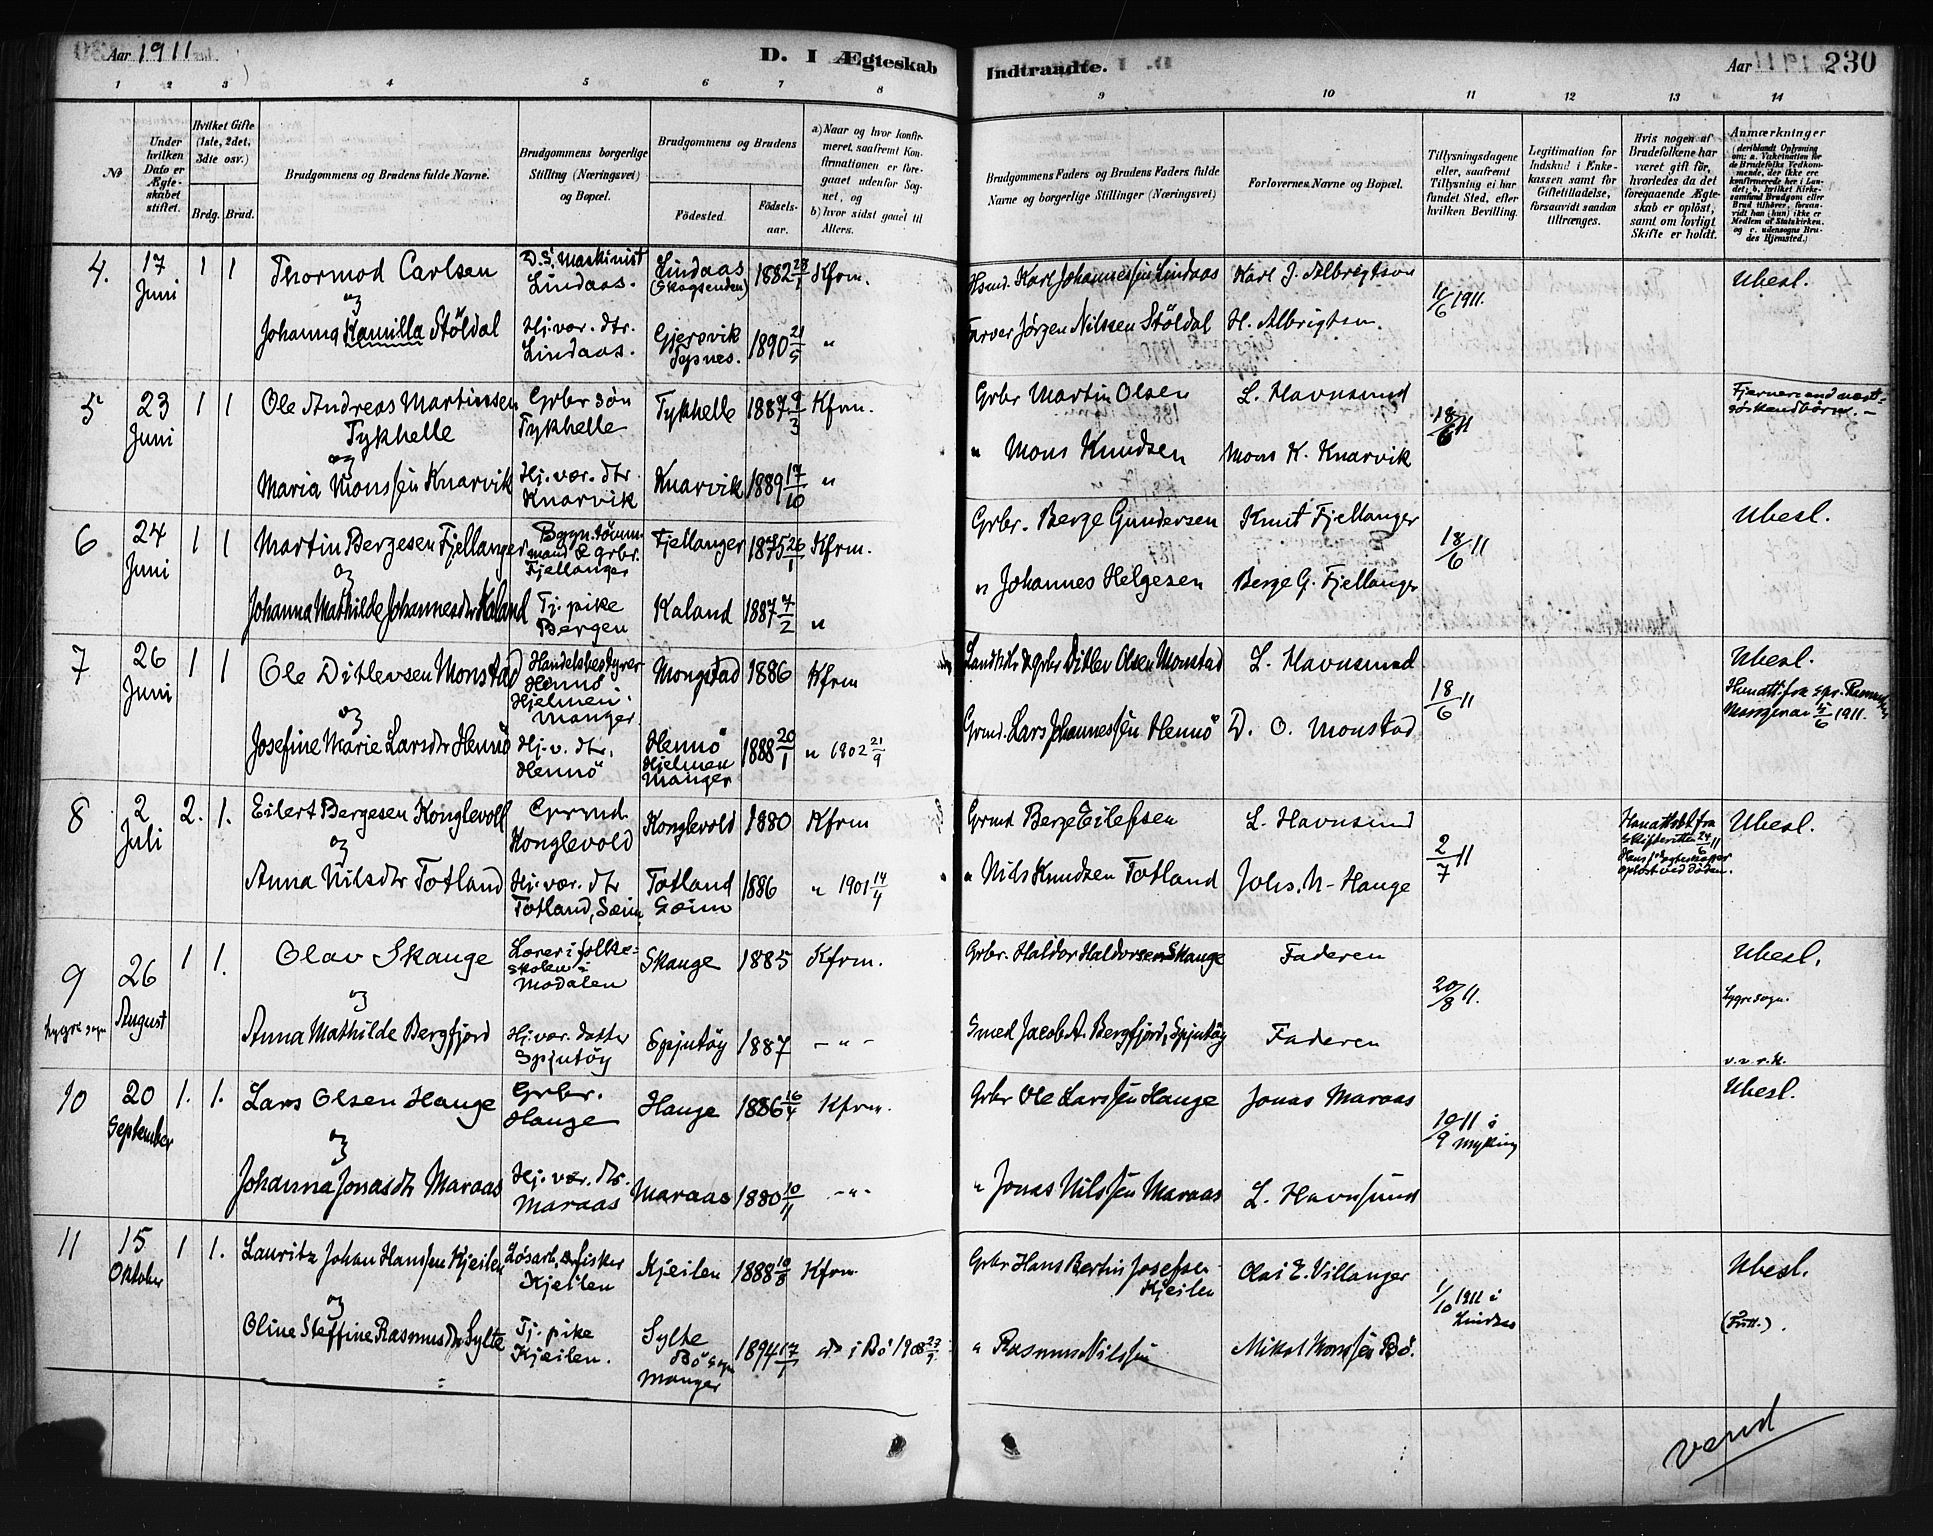 Aar 1911
D. I Ægteskab
Indtraadte.
Aar 1911
230
1 2 3 4 5 6 7 8
9 10 11 12 13 14
№
Under hvilken Dato er Ægteskabet stiftet.
Hvilket Gifte (1ste, 2det, 3die osv.)
Brdg. Brud.
Brudgommens og Brudens fulde Navne.
Brudgommens borgerlige Stilling (Næringsvei) og Bopæl.
Brudgommens og Brudens
Fødested.
Fødselsaar.
a) Naar og hvor konfirmeret, saafremt Konfirmationen er foregaaet udenfor Sognet, og
b) hvor sidst gaaet til Alters.
Brudgommens Faders og Brudens Faders fulde Navne og borgerlige Stillinger (Næringsvei)
Forlovernes Navne og Bopæl.
Tillysningsdagene eller, saafremt Tillysning ei har fundet Sted, efter hvilken Bevilling.
Legitimation for Indskud i Enkekassen samt for Giftetilladelse, forsaavidt saadan tiltrænges.
Hvis nogen af Brudefolkene har været gift før, hvorledes da det foregaaende Ægteskab er opløst, samt om lovligt Skifte er holdt.
Anmærkninger
(deriblandt Oplysning om: a. Vakcination for de Brudefolks Vedkommende, der ikke ere konfirmerede her i Landet; b. hvilket Kirkesamfund Brudgom eller Brud tilhører, forsaavidt han (hun) ikke er Medlem af Statskirken, og c. udensogns Brudes Hjemsted.)
4. 17 Juni 1 1 Thormod Carlsen
D.S. Maskinist Lindaas.
Lindaas (Skogsenden) 1882 28/1 Kfrm.
Hsmd. Karl Johannessen Lindaas
Karl J. Albrigtson
11/6 1911.
Ubesl.
og
Johanna Kamilla Stöldal
Hj. vær. dtr. Lindaas.
Gjersvik Sypnes. 1890 21/5 "
Farver Jörgen Nilssen Stöldal
H. Albrigtsen.
5 23 Juni 1 1 Ole Andreas Martinsen Tykhelle
Grbr sön Tykhelle
Tykhelle 1887 9/3 Kfrm.
Grbr Martin Olsen
L. Havnsund
18/6 11
Fjernere end næstsöskendbörn. –
og
Maria Monssen Knarvik
Hj. vær. dtr Knarvik
Knarvik 1889 17/10 "
" Mons Knudsen
Mons K. Knarvik
6 24 Juni 1 1 Martin Bergesen Fjellanger
Bygn. tömmermand & grbr. Fjellanger
Fjellanger 1875 26/1 Kfrm.
Grbr. Berge Gundersen
Knut Fjellanger
18/6 11
Ubesl.
og
Johanna Mathilde Johannesdtr Kaland
Tj. pike Bergen
Kaland 1887 7/2 "
" Johannes Helgesen
Berge G. Fjellanger
7 26 Juni 1 1 Ole Ditlevsen Monstad
Handelsbestyrer Hennö Hjelmen i Manger
Mongstad 1886 Kfrm
Landhdlr & grbr Ditlev Olsen Monstad
L. Havnsund
18/6 11
Ubesl.
og
Josefine Marie Larsdtr Hennö
Hj. v. dtr. Hennö
Hennö Hjelmen Manger 1888 20/1 " 1902 21/9
Grmd. Lars Johannessen Hennö
D. O. Monstad
8 2 Juli 2. 1. Eilert Bergesen Konglevoll
Grmd. Konglevold
Konglevold 1880 Kfrm
Grmd Berge Eilefsen
L. Havnsund
2/7 11
Har attest fra Skifteretten 24/6 11 Hans 1. ægteskap opløst ved döden.
Ubesl.
og
Anna Nilsdtr Totland
Hj. vær. dtr Totland, Sæim
Totland Sæim 1886 " 1901 14/4
" Nils Knudsen Totland
Johs. N. Hauge
9 26 August 1 1. Olav Skauge
Lærer i folkeskolen i Modalen
Skauge 1885 Kfrm.
Grbr. Haldor Haldorsen Skauge
Faderen
20/8 11.
Ubesl.
Lygre sogn.
Lygre sogn
og
Anna Mathilde Bergfjord
Hj. vær. datter Spjutöy
Spjutöy 1887 – " –
Smed Jacob A. Bergfjord, Spjutöy
Faderen
10 20 September 1. 1. Lars Olsen Hauge
Grbr. Hauge
Hauge 1886 16/4 Kfrm.
Grbr Ole Larssen Hauge
Jonas Maraas
10/9 11 i Myking
Ubesl.
og
Johanna Jonasdtr Maraas
Hj. vær. dtr. Maraas
Maraas 1880 10/11 – " –
" Jonas Nilssen Maraas
L. Havnsund
11 15 Oktober 1 1. Lauritz Johan Hanssen Kjeilen
Løsarb. & fisker Kjeilen
Kjeilen 1888 10/8 Kfrm
Grbr Hans Bertin Josefsen Kjeilen
Olai E. Villanger
1/10 1911 i Lindaas
Ubesl.
og
Oline Steffine Rasmusdtr Sylte
Tj. pike Kjeilen.
Sylte Bö sogn Manger 1894 17/1 do i Bö 1908
" Rasmus Nilssen
Mikal Monssen Bö.
vend